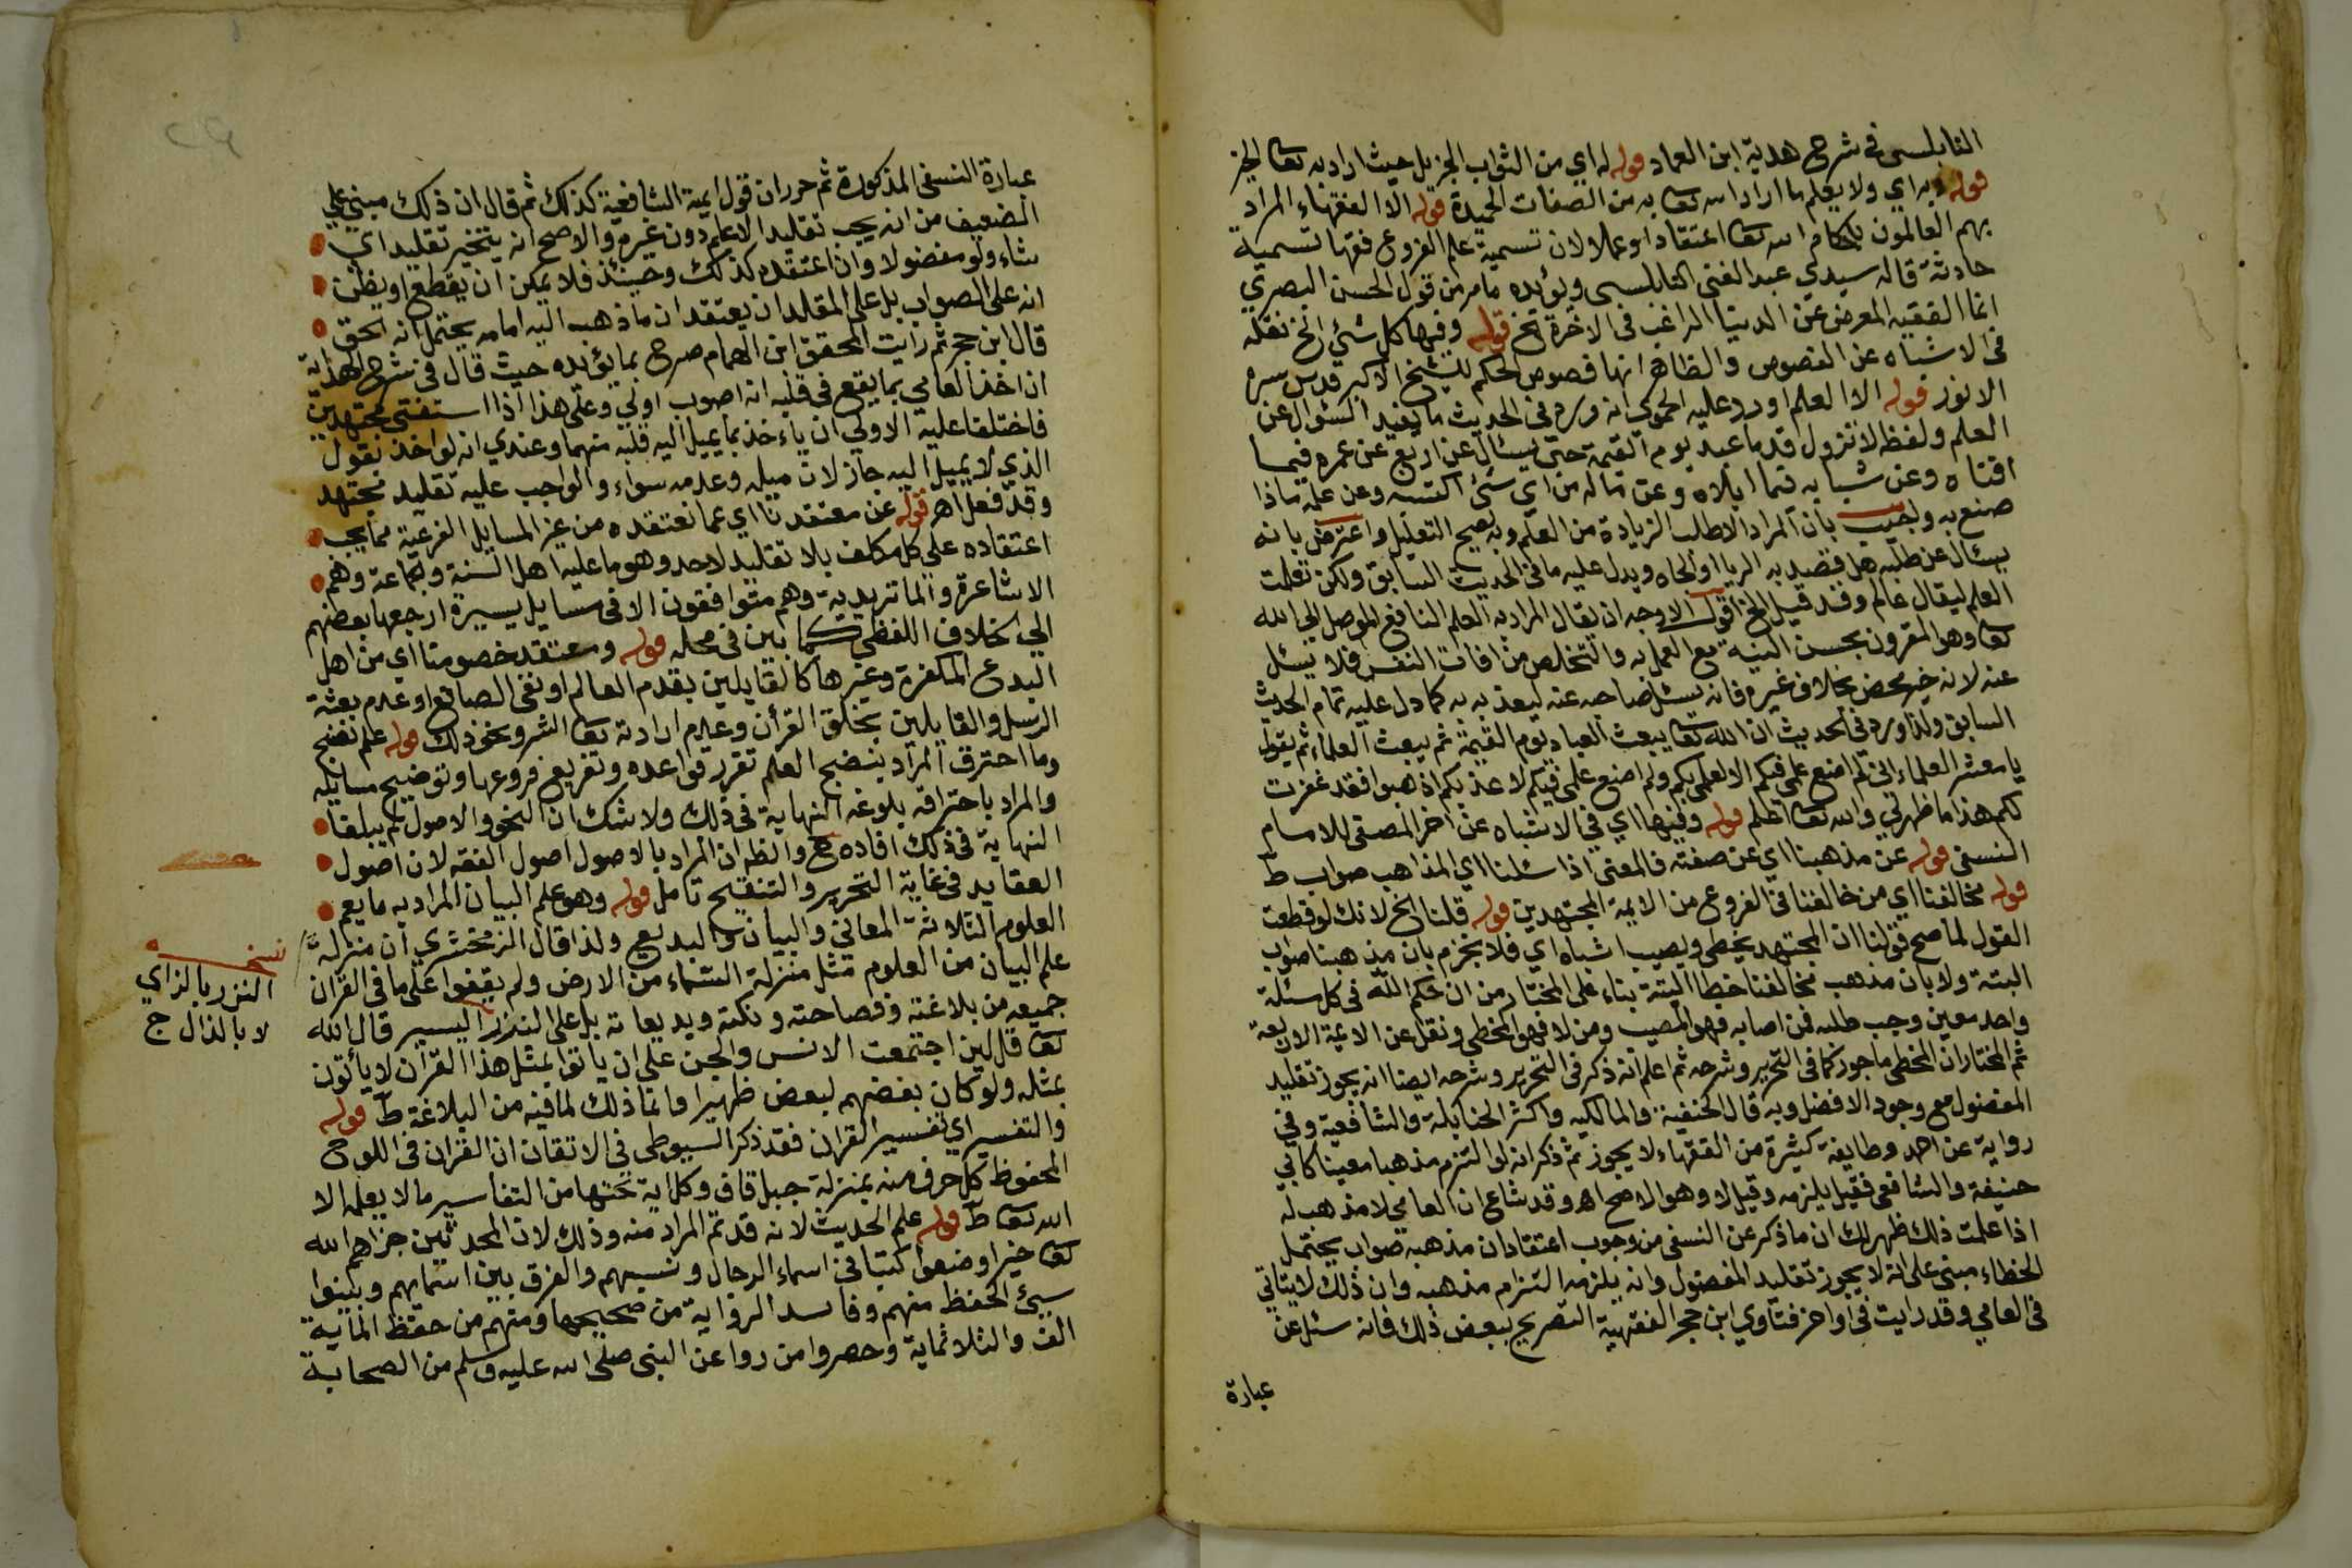 النابلسى فى شرح هدية ابن العماد قوله له اي من الثواب الجزيل حيث اراد به تعا الخير
قوله به اي ولا يعلم ما اراد الله تعا به من الصفات الحميدة قوله الا الفقهاء المراد
بهم العالمون باحكام الله تعا اعتقادا وعملا لان تسمية علم الفروع فقها تسمية
حادثة قاله سيدي عبد الغنى النابلسى ويؤيده مامر من قول الحسن البصري
انما الفقيه المعرض عن الدنيا الراغب فى الاخرة الخ قوله وفيها كل شئ الخ نقله
فى الاشباه عن الفصوص والظاهر انها فصوص الحكم للشيخ الاكبر قدس سره
الانور قوله الا العلم اورد عليه الحموي انه ورد فى الحديث ما يفيد السؤال عن
العلم ولفظ لا تزول قدما عبد يوم القيمة حتى يسئال عن اربع عن عمره فيما
افناه وعن شبابه فيما ابلاه وعن ماله من اي شئ اكتسبه وعن علمه ماذا
صنع به واجيب بان المراد لا طلب الزيادة من العلم وبه يصح التعليل واعترض بانه
يسئال عن طلبه هل قصد به الريا او الجاه ويدل عليه ما فى الحديث السابق ولكن تعلمت
العلم ليقال عالم وقد قيل الخ اقول الاوجه ان يقال المراد به العلم النافع الموصل الى الله
تعا وهو المقرون بحسن النية مع العمل به والتخلص من افات النفس فلا يسئل
عنه لانه خير محض بخلاف غيره فانه يسئل صاحبه عنه ليعذب به كما دل عليه تمام الحديث
السابق ولذا ورد فى الحديث ان الله تعا يبعث العباد يوم القيمة ثم يبعث العلماء ثم يقول
يا معشر العلماء انى لم اضع علمى فيكم الا لعلمى بكم ولم اضع علمى فيكم لاعذبكم اذهبوا فقد غفرت
لكم هذا ما ظهر لى والله تعا اعلم قوله وفيها اي فى الاشباه عن اخر المصفى للامام
النسفى قوله عن مذهبنا اي عن صفته فالمعنى اذا سئلنا اي المذاهب صواب ط
قوله مخالفنا اي من خالفنا فى الفروع من الايمة المجتهدين قوله قلنا الخ لانك لو قطعت
القول لما صح قولنا ان المجتهد يخطى ويصيب اشباه اي فلا نجزم بان مذهبنا صواب
البتة ولا بان مذهب مخالفنا خطا البتة بناء على المختار من ان حكم الله فى كل مسئلة
واحد معين وجب طلبه فمن اصابه فهو المصيب ومن لا فهو المخطى ونقل عن الايمة الاربعة
ثم المختار ان المخطى ماجور كما فى التحرير وشرحه ثم اعلم انه ذكر فى التحرير وشرحه ايضا انه يجوز تقليد
المفضول مع وجود الافضل وبه قال الحنفية والمالكيه واكثر الحنابلة والشافعية وفى
رواية عن احمد وطايفة كثيرة من الفقهاء لا يجوز ثم ذكر انه لو التزم مذهبا معينا كابي
حنيفة والشافعى فقيل يلزمه وقيل لا وهو الاصح اه وقد شاع ان العامى لا مذهب له
اذا علمت ذلك ظهر لك ان ما ذكر عن النسفى من وجوب اعتقاد ان مذهبه صواب يحتمل
الخطاء مبنى على انه لا يجوز تقليد المفضول وانه يلزمه التزام مذهبه وان ذلك لا يتاتي
فى العامي وقد رايت فى اواخر فتاوي ابن حجر الفقهية التصريح ببعض ذلك فانه سئل عن
عبارة
عبارة النسفى المذكورة ثم حرر ان قول ايمة الشافعية كذلك ثم قال ان ذلك مبنى على
الضعيف من انه يجب تقليد الاعلم دون غيره والاصح انه يتخير تقليد اي
شاء ولو مفضولا وان اعتقده كذلك وحينئذ فلا يمكن ان يقطع او يظن
انه على الصواب بل على المقلد ان يعتقد ان ما ذهب اليه امامه يحتمل انه الحق
قال ابن حجر ثم رايت المحقق ابن الهمام صرح بما يؤيده حيث قال فى شرح الهداية
ان اخذ العامي بما يقع فى قلبه انه اصوب اولي وعلى هذا اذا استفتى مجتهدين
فاختلفا عليه الاولي ان ياءخذ بما يميل اليه قلبه منهما وعندي انه لو اخذ بقول
الذي لا يميل اليه جاز لان ميله وعدمه سواء والواجب عليه تقليد مجتهد
وقد فعل اه قوله عن معتقدنا اي عما نعتقده من غير المسايل الفرعية مما يجب
اعتقاده على كل مكلف بلا تقليد لاحد وهو ما عليه اهل السنة والجماعة وهم
الاشاعرة والماتريدية وهم متوافقون الا فى مسايل يسيرة ارجعها بعضهم
الى الخلاف اللفظى كما بين فى محله قوله ومعتقد خصومنا اي من اهل
البدع المكفرة وغيرها كالقايلين بقدم العالم او نفى الصانع او عدم بعثة
الرسل والقايلين بخلق القرأن وعدم ارادته تعا الشر ونحو ذلك قوله علم نضج
وما احترق المراد بنضج العلم تقرر قواعده وتفريع فروعها وتوضيح مسايله
والمراد باحتراقه بلوغه النهاية فى ذلك ولا شك ان النحو والاصول لم يبلغا
النهاية فى ذلك افاده ح والظ ان المراد بالاصول اصول الفقه لان اصول
العقايد فى غاية التحرير والتنقيح تامل قوله وهو علم البيان المراد به ما يعم
العلوم الثلاثة المعانى والبيان والبديع ولذا قال الزمخشري ان منزلة
علم البيان من العلوم مثل منزلة السماء من الارض ولم يقفوا على ما فى القران
جميعه من بلاغته وفصاحته ونكته وبديعاته بل على النزر اليسير قال الله
تعا قل لين اجتمعت الانس والجن على ان ياتوا بمثل هذا القرأن لا يأتون
بمثله ولو كان بعضهم لبعض ظهيرا وانما ذلك لما فيه من البلاغة ط قوله
والتفسير اي تفسير القران فقد ذكر السيوطى فى الاتقان ان القران فى اللوح
المحفوظ كل حرف منه بمنزلة جبل قاف وكل اية تحتها من التفاسير ما لا يعلمه الا
الله تعا ط قوله علم الحديث لانه قد تم المراد منه وذلك لان المحدثين جزاهم الله
تعا خيرا وضعوا كتبا فى اسماء الرجال ونسبهم والفرق بين اسمايهم وبينوا
سيئ الحفظ منهم وفاسد الرواية من صحيحها ومنهم من حفظ الماية
الف والثلاثماية وحصروا من روا عن النبى صلى الله عليه وسلم من الصحابة
نسخه
النزر بالزاي
لا بالذال ح